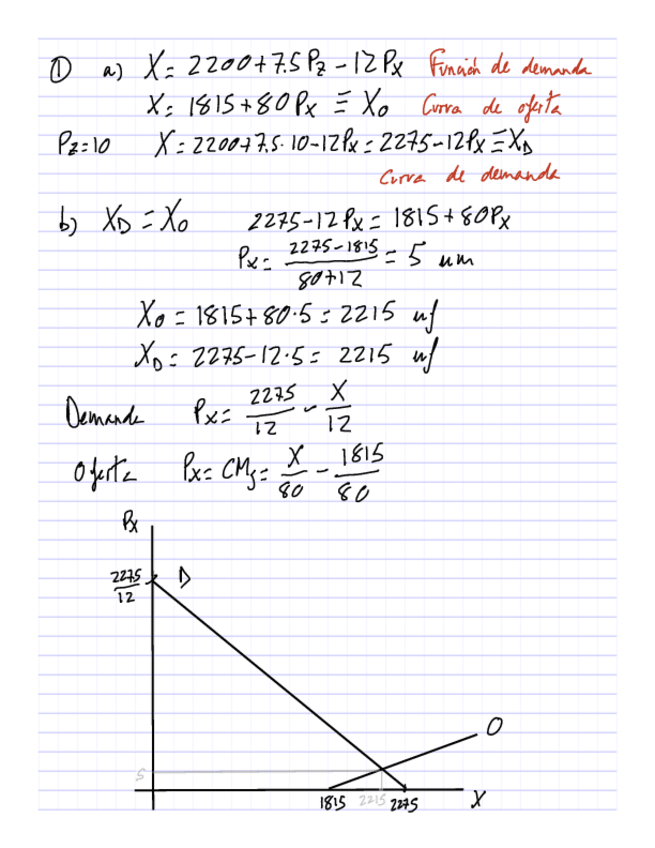 ① a) X = 2200 + 7.5 Pz - 12 Px Función de demanda
X = 1815 + 80 Px ≡ Xo Curva de oferta
Pz = 10 X = 2200 + 7.5 · 10 - 12 Px = 2275 - 12 Px ≡ XD
Curva de demanda
b) XD = Xo 2275 - 12 Px = 1815 + 80 Px
Px = (2275 - 1815)/(80 + 12) = 5 um
Xo = 1815 + 80 · 5 = 2215 uf
XD = 2275 - 12 · 5 = 2215 uf
Demanda Px = 2275/12 - X/12
Oferta Px = CMg = X/80 - 1815/80
Px
2275/12 D
O
5
1815 2215 2275 X